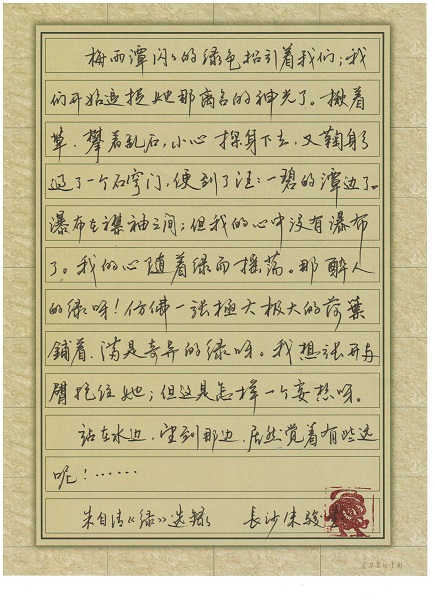 梅雨潭闪闪的绿色招引着我们;我
们开始追捉她那离合的神光了。揪着
草,攀着乱石,小心探身下去,又鞠躬
过了一个石穹门,便到了汪汪一碧的潭边了。
瀑布在襟袖之间;但我的心中没有瀑布
了。我的心随着绿而摇荡。那醉人
的绿呀!仿佛一张極大极大的荷葉
鋪着,满是奇异的绿呀。我想张开两
臂抱住她;但这是怎样一个妄想呀。
站在水边,望到那边,居然觉着有些远
呢!……
朱自清《绿》选録 長沙朱骏